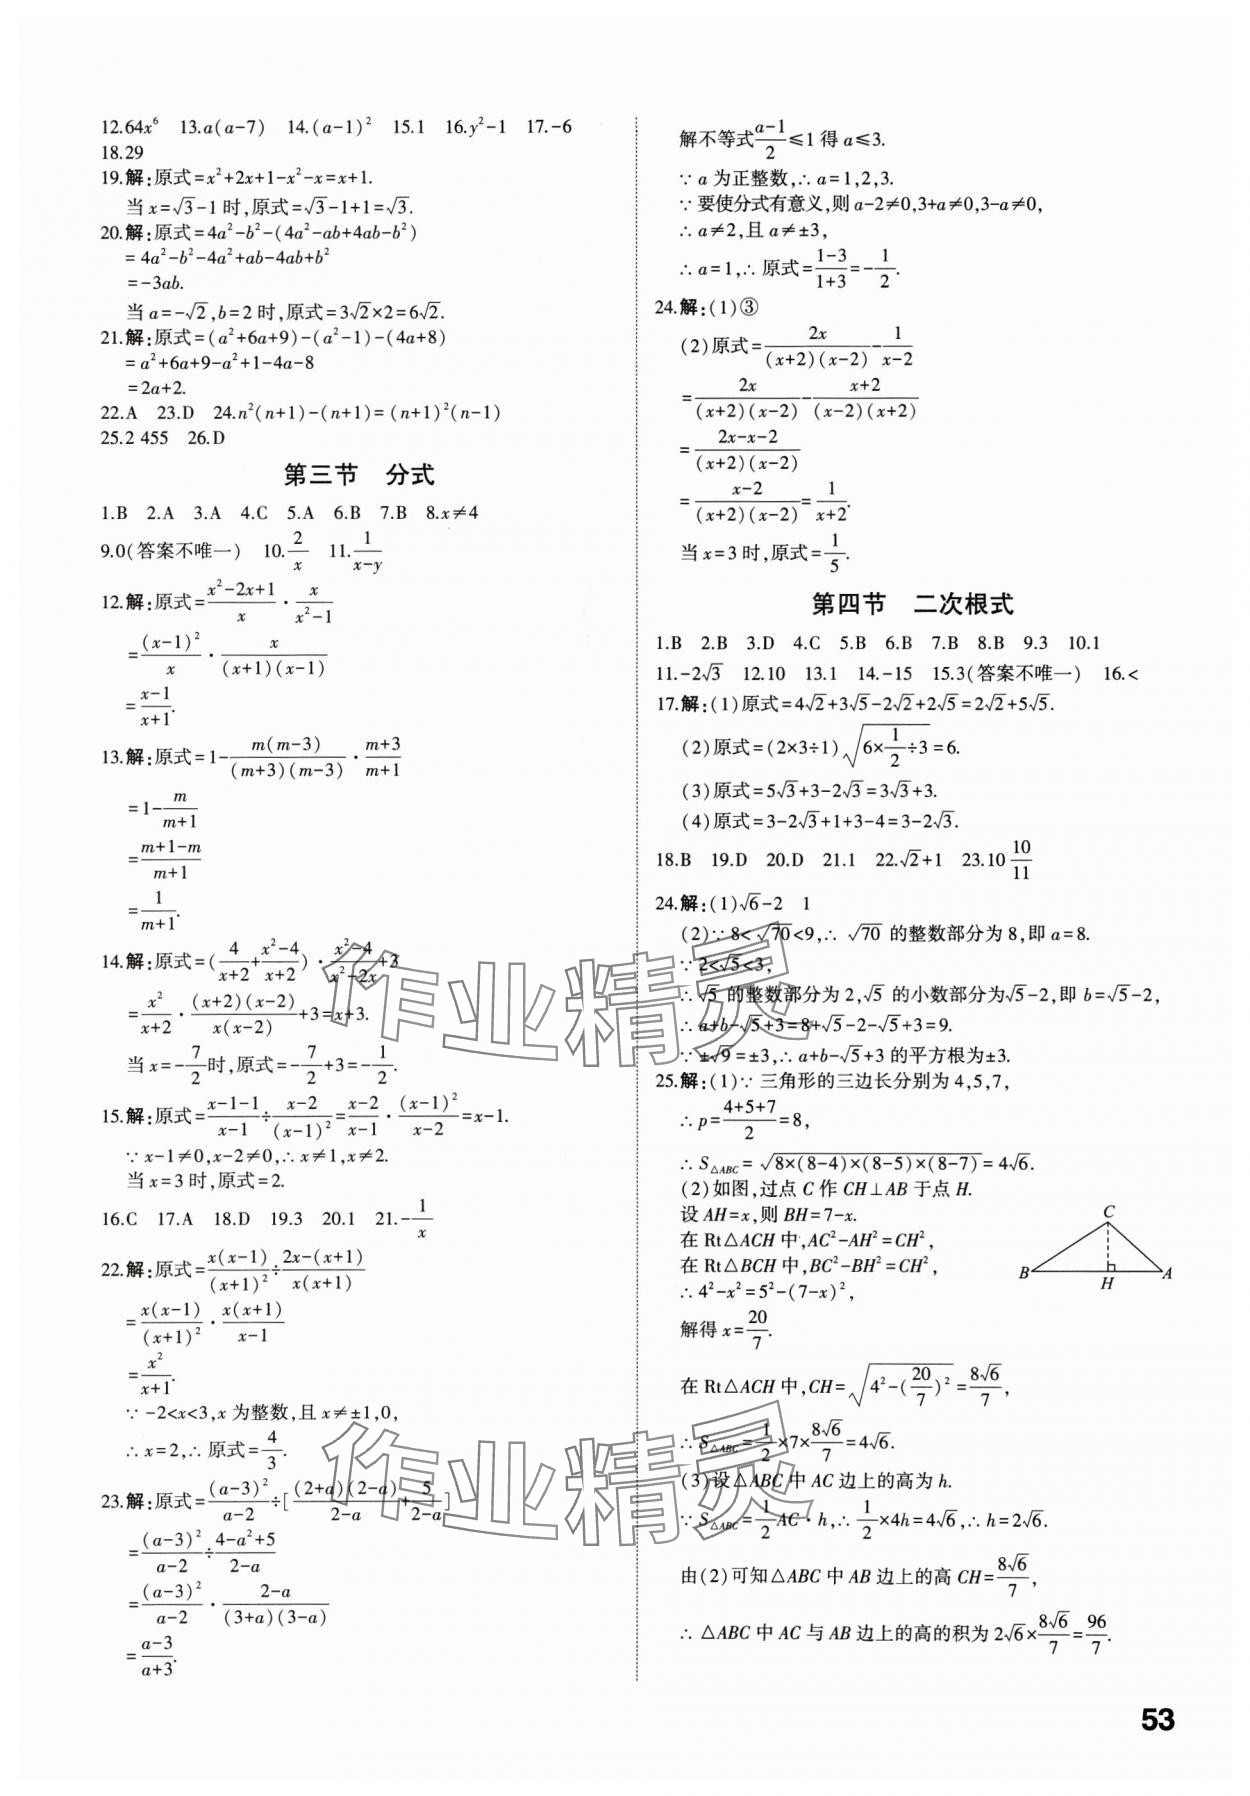 12.64x⁶ 13.a(a-7) 14.(a-1)² 15.1 16.y²-1 17.-6
18.29
19.解:原式=x²+2x+1-x²-x=x+1.
当x=√3-1时,原式=√3-1+1=√3.
20.解:原式=4a²-b²-(4a²-ab+4ab-b²)
=4a²-b²-4a²+ab-4ab+b²
=-3ab.
当a=-√2,b=2时,原式=3√2×2=6√2.
21.解:原式=(a²+6a+9)-(a²-1)-(4a+8)
=a²+6a+9-a²+1-4a-8
=2a+2.
22.A 23.D 24.n²(n+1)-(n+1)=(n+1)²(n-1)
25.2 455 26.D
第三节 分式
1.B 2.A 3.A 4.C 5.A 6.B 7.B 8.x≠4
9.0(答案不唯一) 10.2/x 11.1/(x-y)
12.解:原式=(x²-2x+1)/x·x/(x²-1)
=(x-1)²/x·x/((x+1)(x-1))
=(x-1)/(x+1).
13.解:原式=1-m(m-3)/((m+3)(m-3))·(m+3)/(m+1)
=1-m/(m+1)
=(m+1-m)/(m+1)
=1/(m+1).
14.解:原式=(4/(x+2)+(x²-4)/(x+2))·(x²-4)/(x²-2x)+3
=x²/(x+2)·(x+2)(x-2)/(x(x-2))+3=x+3.
当x=-7/2时,原式=-7/2+3=-1/2.
15.解:原式=(x-1-1)/(x-1)÷(x-2)/(x-1)²=(x-2)/(x-1)·(x-1)²/(x-2)=x-1.
∵x-1≠0,x-2≠0,∴x≠1,x≠2.
当x=3时,原式=2.
16.C 17.A 18.D 19.3 20.1 21.-1/x
22.解:原式=x(x-1)/(x+1)²÷(2x-(x+1))/(x(x+1))
=x(x-1)/(x+1)²·x(x+1)/(x-1)
=x²/(x+1).
∵-2<x<3,x为整数,且x≠±1,0,
∴x=2,∴原式=4/3.
23.解:原式=(a-3)²/(a-2)÷[(2+a)(2-a)/(2-a)+5/(2-a)]
=(a-3)²/(a-2)÷(4-a²+5)/(2-a)
=(a-3)²/(a-2)·(2-a)/((3+a)(3-a))
=(a-3)/(a+3).
解不等式(a-1)/2≤1得a≤3.
∵a为正整数,∴a=1,2,3.
∵要使分式有意义,则a-2≠0,3+a≠0,3-a≠0,
∴a≠2,且a≠±3,
∴a=1,∴原式=(1-3)/(1+3)=-1/2.
24.解:(1)③
(2)原式=2x/((x+2)(x-2))-1/(x-2)
=2x/((x+2)(x-2))-(x+2)/((x-2)(x+2))
=(2x-x-2)/((x+2)(x-2))
=(x-2)/((x+2)(x-2))=1/(x+2).
当x=3时,原式=1/5.
第四节 二次根式
1.B 2.B 3.D 4.C 5.B 6.B 7.B 8.B 9.3 10.1
11.-2√3 12.10 13.1 14.-15 15.3(答案不唯一) 16.<
17.解:(1)原式=4√2+3√5-2√2+2√5=2√2+5√5.
(2)原式=(2×3÷1)√(6×1/2÷3)=6.
(3)原式=5√3+3-2√3=3√3+3.
(4)原式=3-2√3+1+3-4=3-2√3.
18.B 19.D 20.D 21.1 22.√2+1 23.10 10/11
24.解:(1)√6-2 1
(2)∵8<√70<9,∴√70的整数部分为8,即a=8.
∵2<√5<3,
∴√5的整数部分为2,√5的小数部分为√5-2,即b=√5-2,
∴a+b-√5+3=8+√5-2-√5+3=9.
∵±√9=±3,∴a+b-√5+3的平方根为±3.
25.解:(1)∵三角形的三边长分别为4,5,7,
∴p=(4+5+7)/2=8,
∴S△ABC=√(8×(8-4)×(8-5)×(8-7))=4√6.
(2)如图,过点C作CH⊥AB于点H.
设AH=x,则BH=7-x.
在Rt△ACH中,AC²-AH²=CH²,
在Rt△BCH中,BC²-BH²=CH²,
∴4²-x²=5²-(7-x)²,
解得x=20/7.
C
B
H
A
在Rt△ACH中,CH=√(4²-(20/7)²)=8√6/7,
∴S△ABC=1/2×7×8√6/7=4√6.
(3)设△ABC中AC边上的高为h.
∵S△ABC=1/2AC·h,∴1/2×4h=4√6,∴h=2√6.
由(2)可知△ABC中AB边上的高CH=8√6/7,
∴△ABC中AC与AB边上的高的积为2√6×8√6/7=96/7.
作业精灵
作业精灵
53